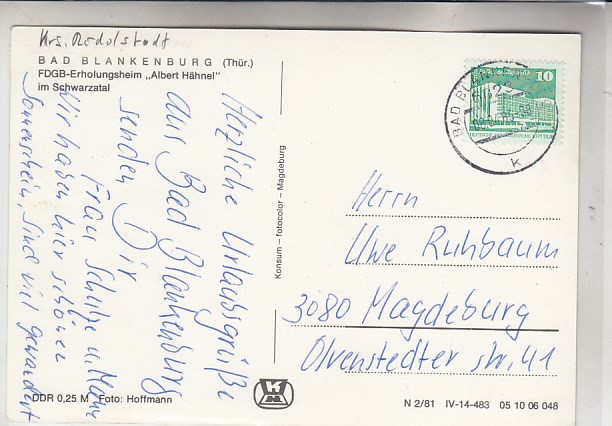 Krs. Rudolstadt
BAD BLANKENBURG (Thür.)
FDGB-Erholungsheim „Albert Hähnel"
im Schwarzatal
Herzliche Urlaubsgrüße
aus Bad Blankenburg
senden Dir
Frau Schulze u.
Wir haben hier schönen
Sonnenschein, sind viel gewandert
Konsum – fotocolor – Magdeburg
10
BAD BLANKENBURG
k
Herrn
Uwe Ruhbaum
3080 Magdeburg
Olvenstedter Str. 41
DDR 0,25 M Foto: Hoffmann
N 2/81 IV-14-483 05 10 06 048